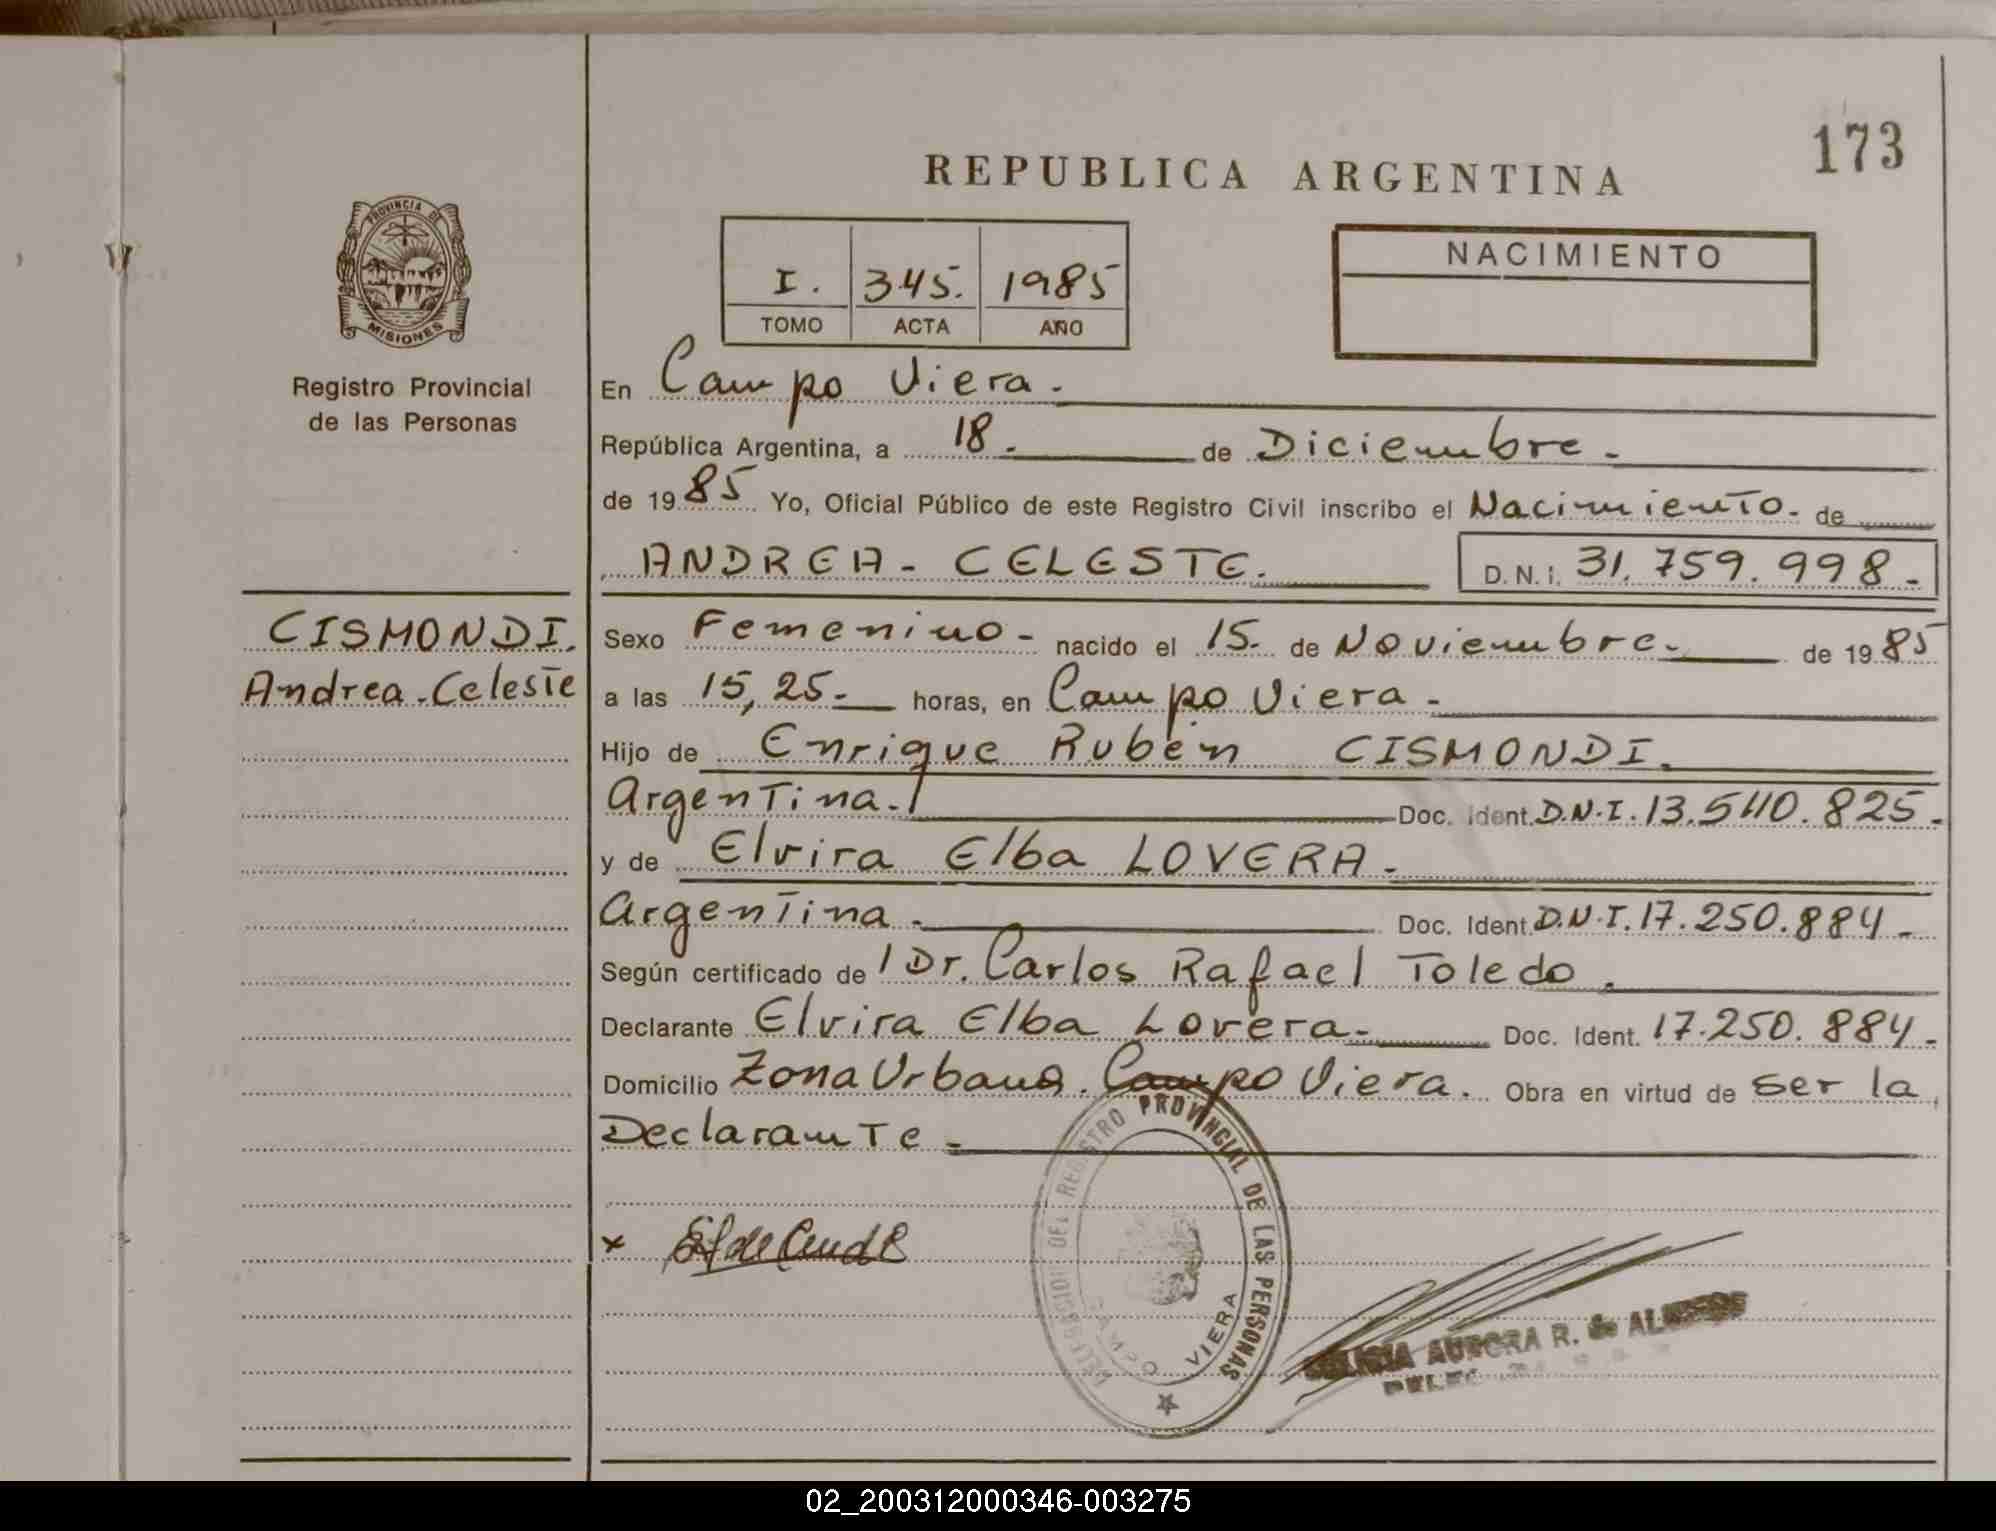 173
REPUBLICA ARGENTINA
PROVINCIA DE
MISIONES
Registro Provincial
de las Personas
I. 345. 1985
TOMO ACTA AÑO
NACIMIENTO
En Campo Viera.
República Argentina, a 18. de Diciembre.
de 1985 Yo, Oficial Público de este Registro Civil inscribo el Nacimiento. de
ANDREA - CELESTE. D.N.I. 31.759.998.
CISMONDI.
Andrea. Celeste
Sexo Femenino - nacido el 15. de Noviembre. de 1985
a las 15,25. horas, en Campo Viera.
Hijo de Enrique Rubén CISMONDI.
Argentina. Doc. Ident. D.N.I. 13.540.825.
y de Elvira Elba LOVERA.
Argentina. Doc. Ident. D.N.I. 17.250.884.
Según certificado de / Dr. Carlos Rafael Toledo.
Declarante Elvira Elba Lovera. Doc. Ident. 17.250.884.
Domicilio Zona Urbana. Campo Viera. Obra en virtud de Ser la
Declarante.
DELEGACION DEL REGISTRO PROVINCIAL DE LAS PERSONAS
CAMPO VIERA
x
AURORA R. de
02_200312000346-003275